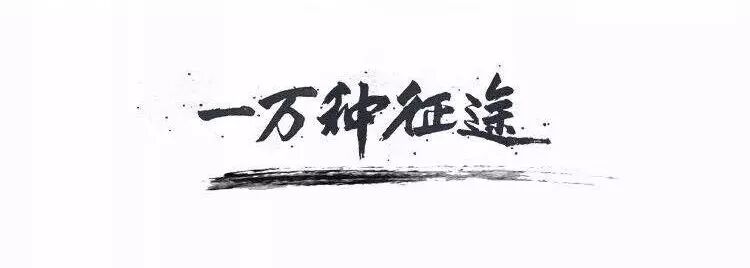 一万种征途